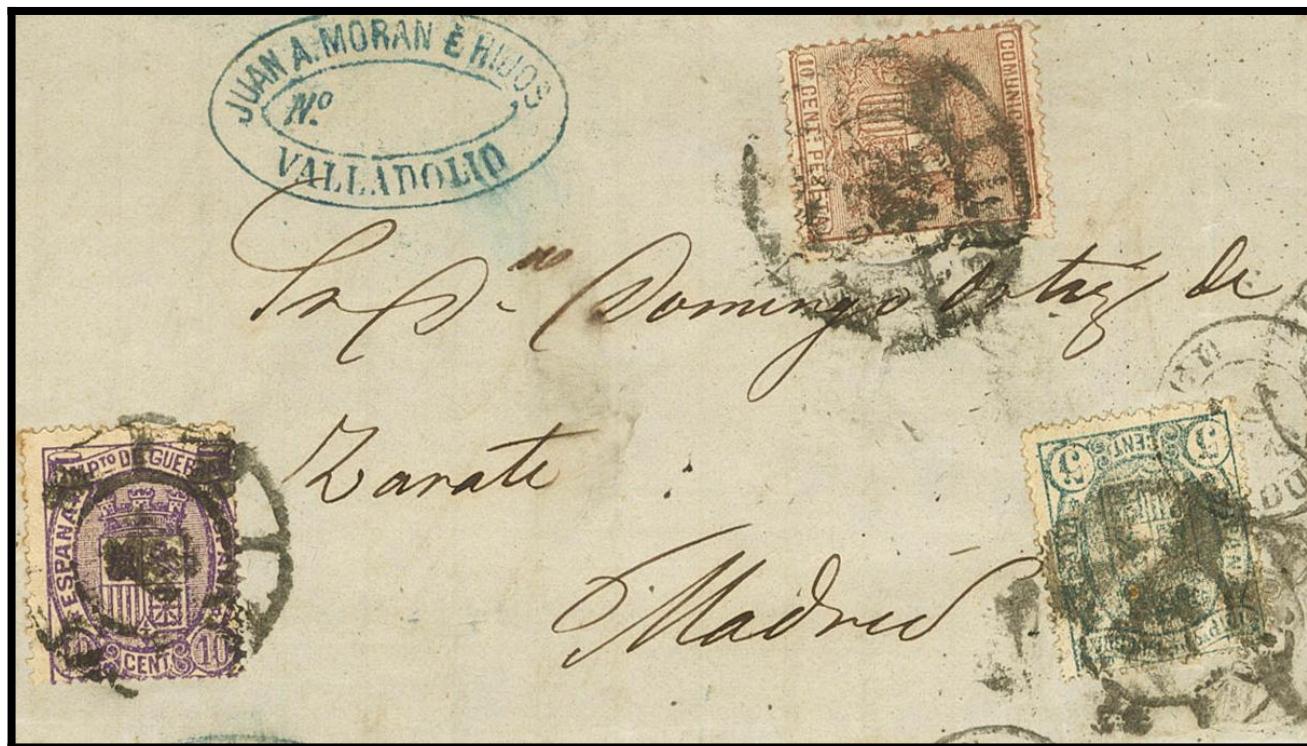 JUAN A. MORAN É HIJOS
Nº
VALLADOLID
COMUNIC
10 CENT. PESETA
Sr Dn Domingo Ortiz de
Zarate
Madrid
IMPTO DE GUERRA
ESPAÑA
10 CENT 10
5 CENT 5